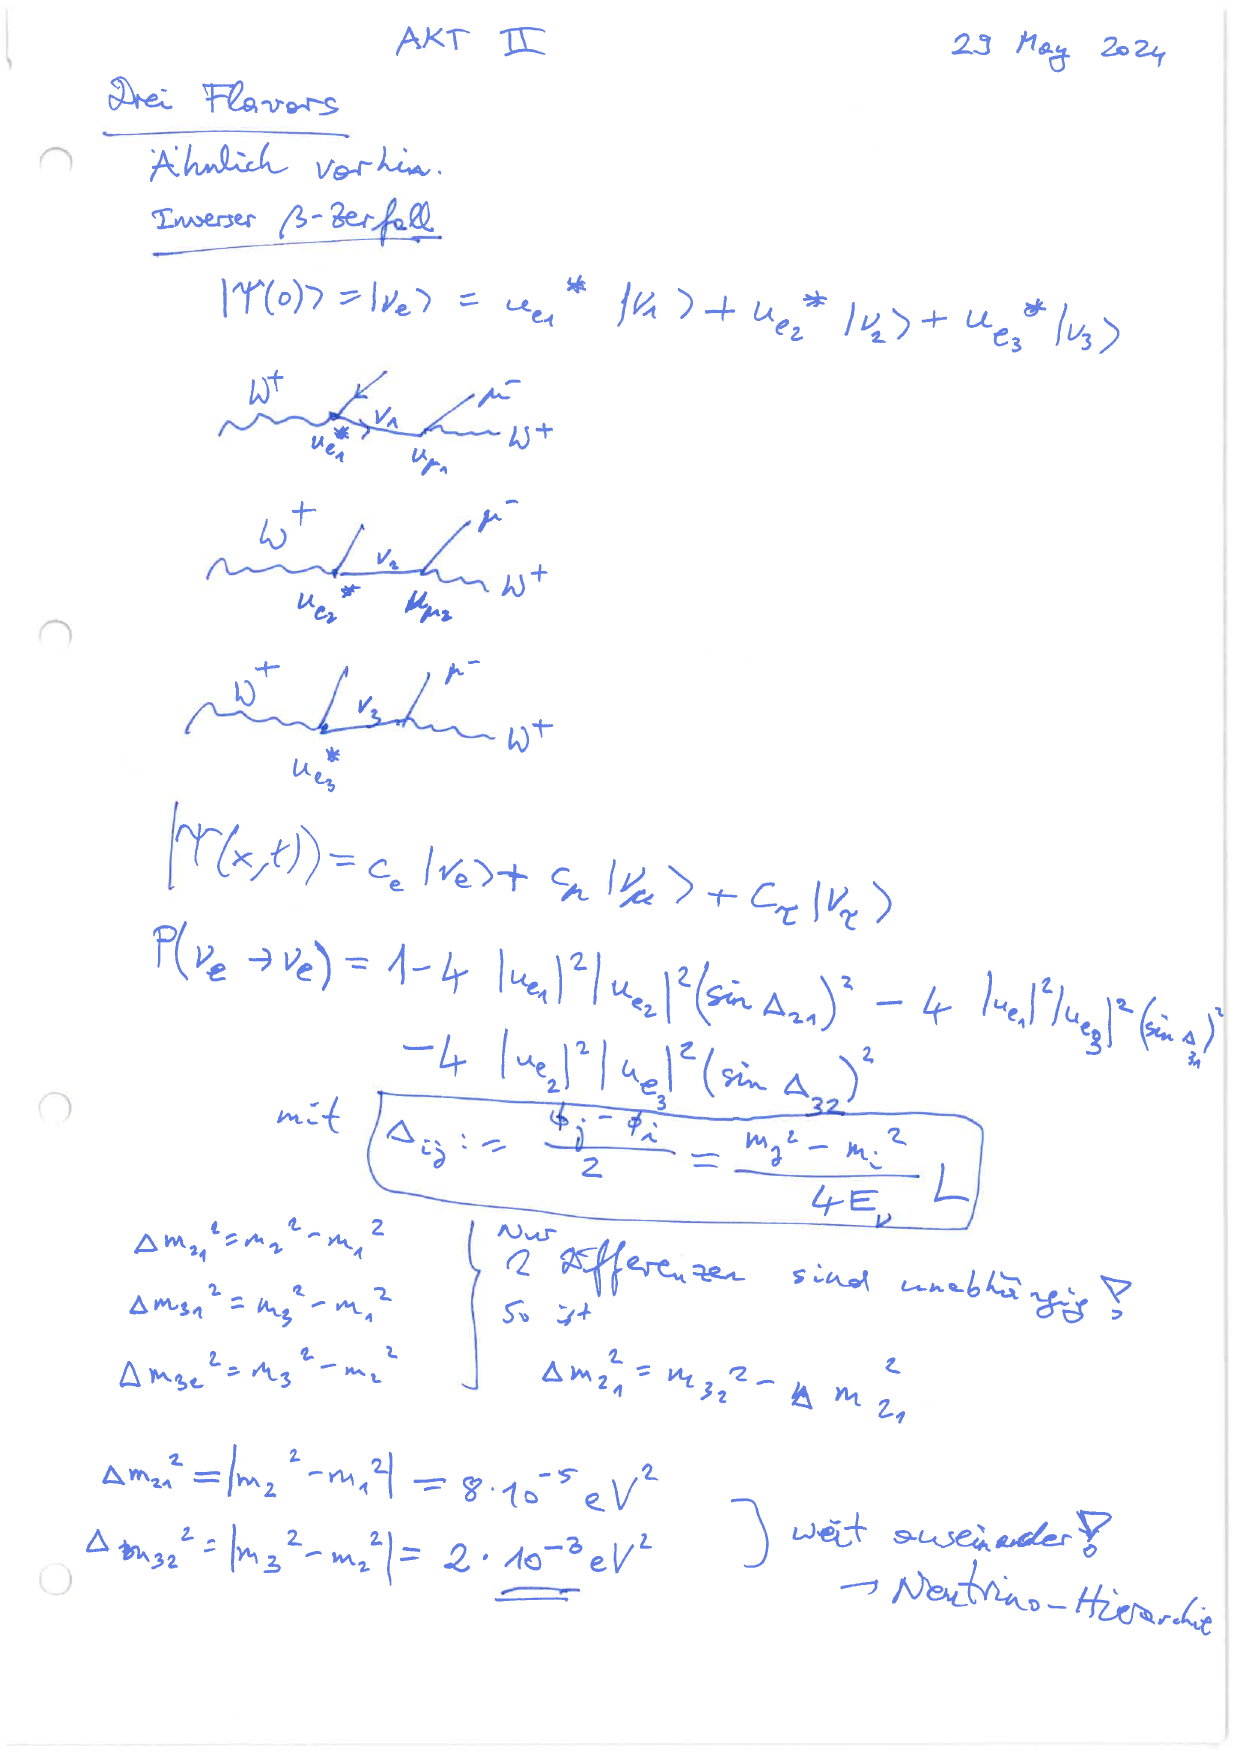 AKT II
29 May 2024
Drei Flavors
Ähnlich vorhin.
Inverser β-Zerfall
|Ψ(0)⟩ = |νe⟩ = ue1* |ν1⟩ + ue2* |ν2⟩ + ue3* |ν3⟩
W+ ν1 μ- W+
ue1* uμ1
W+ ν2 μ- W+
ue2* uμ2
W+ ν3 μ- W+
ue3*
|Ψ(x,t)⟩ = ce |νe⟩ + cμ |νμ⟩ + cτ |ντ⟩
P(νe → νe) = 1 - 4 |ue1|² |ue2|² (sin Δ21)² - 4 |ue1|² |ue3|² (sin Δ31)²
- 4 |ue2|² |ue3|² (sin Δ32)²
mit Δij := (ϕj - ϕi)/2 = (mj² - mi²)/(4Eν) L
Δm21² = m2² - m1²
Δm31² = m3² - m1²
Δm32² = m3² - m2²
Nur
2 Differenzen sind unabhängig!
So ist
Δm21² = m32² - Δm21²
Δm21² = |m2² - m1²| = 8·10⁻⁵ eV²
Δm32² = |m3² - m2²| = 2·10⁻³ eV²
weit auseinander!
→ Neutrino-Hierarchie